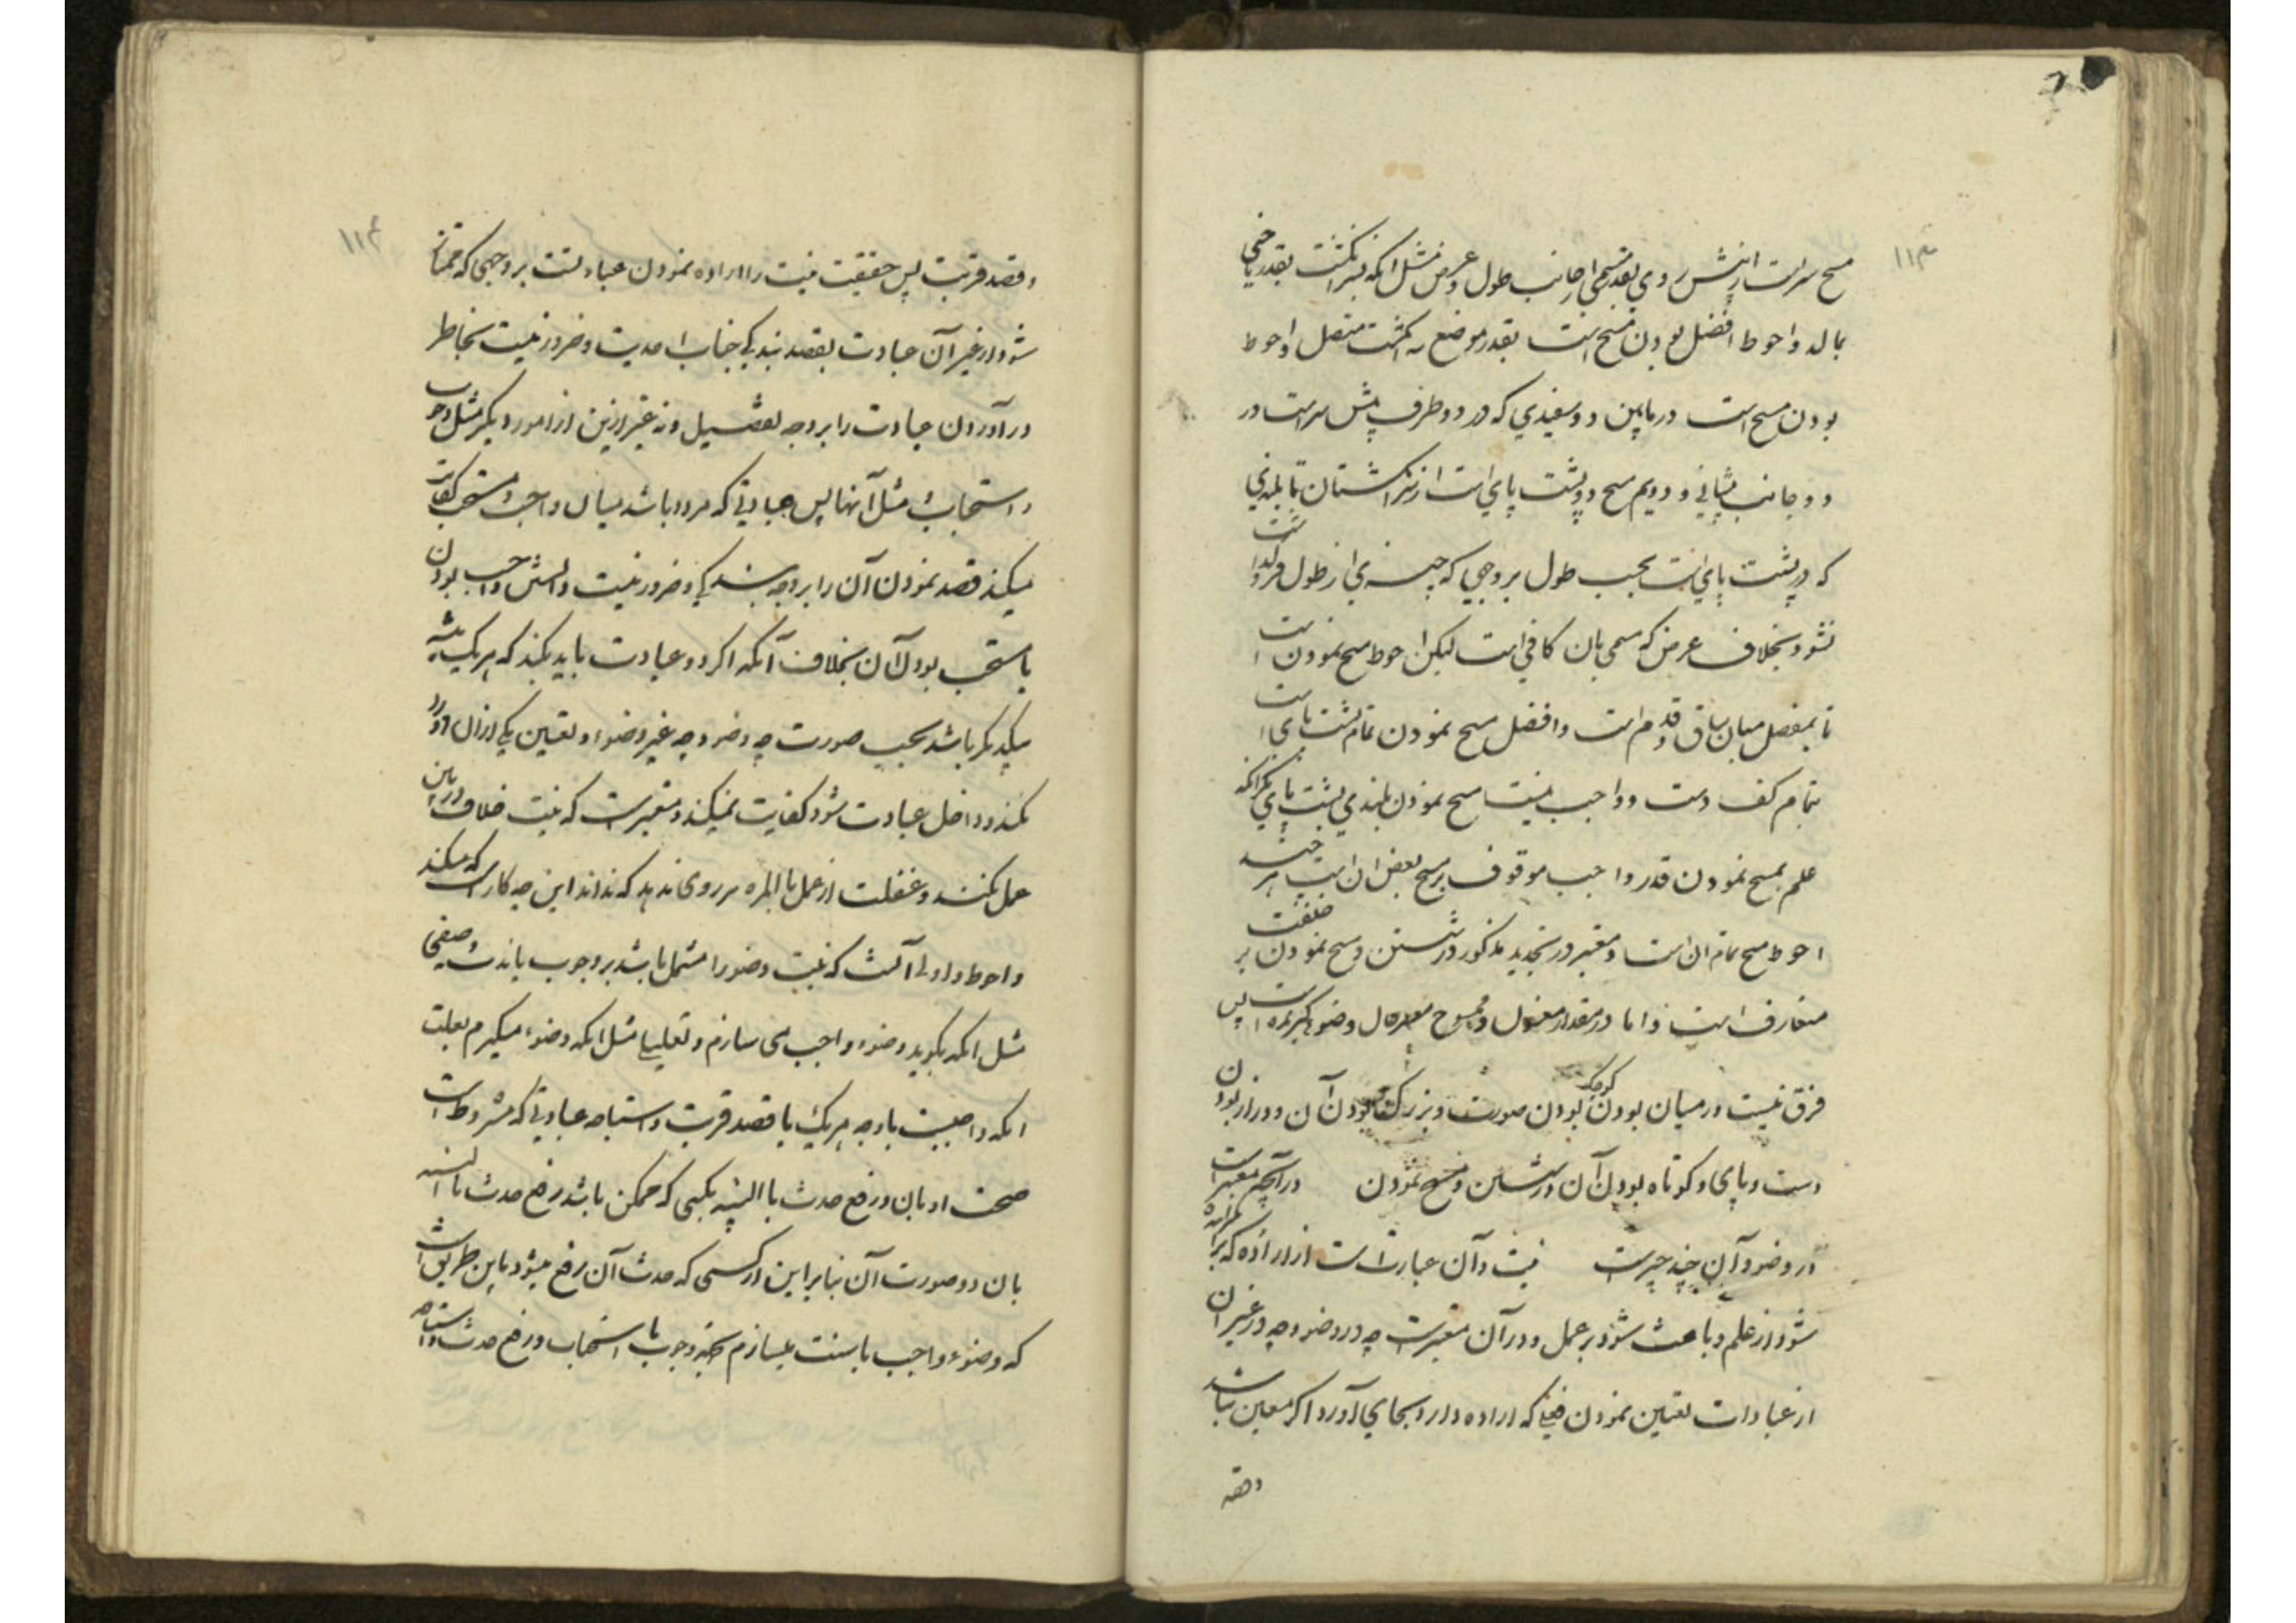 ۱۱۳
مسح سر است از پیش روی بقدر مسمی از جانب طول و عرض مثل آنکه سر انگشت بقدر ناخنی
بمالد و احوط افضل بودن مسح است بقدر موضع سه انگشت متصل و احوط
بودن مسح است در مابین دو سفیدی که در دو طرف پیش سر است در
دو جانب پیشانی و دویم مسح دو پشت پای است از سر انگشتان تا بلندی
که در پشت پای است بحسب طول بر وجهی که چیزی از طول فرو گذاشت
نشود بخلاف عرض که مسمی بآن کافی است لیکن احوط مسح نمودن است
تا بمفصل میان ساق و قدم است و افضل مسح نمودن تمام پشت پای است
بتمام کف دست و واجب نیست مسح نمودن بلندی پشت پای مگر آنکه
علم بمسح نمودن قدر واجب موقوف بر مسح بعض آن است هر چند
احوط مسح تمام آن است و معتبر در تحدید مذکور در شستن و مسح نمودن بر خلقت
متعارف است و اما در مقدار مغسول و ممسوح وضو است پس
فرق نیست در میان بودن کوچک بودن صورت و بزرگ بودن آن و دراز بودن
دست و پای و کوتاه بودن آن در شستن و مسح نمودن در آنچه معتبر است
در وضو و آن چند چیز است نیت و آن عبارت است از اراده که برانگیخته
شود از علم و باعث شود بر عمل و در آن معتبر است چه در وضو و چه در غیر آن
از عبادات تعیین نمودن فعلی که اراده دارد بجای آورد اگر معین نباشد
وقصد
۱۱۴
وقصد قربت پس حقیقت نیت را اراده نمودن عبادتست بر وجهی که ممتاز
شود از غیر آن عبادت بقصد بندگی جناب احدیت و ضرور نیست بخاطر
در آوردن عبادت را بر وجه تفصیل و نه غیر ازین از امور دیگر مثل وجوب
و استحباب و مثل آنها پس عبادتی که مردد باشد میان واجب و مستحب کفایت
میکند قصد نمودن آن را بر وجه بندگی و ضرور نیست دانستن واجب بودن
یا مستحب بودن آن بخلاف آنکه اگر دو عبادت باید بکند که هر یک شبیه
بیکدیگر باشد بحسب صورت چه وضو و چه غیر وضوء و تعیین یکی از آن دو را
نکند و داخل عبادت شود کفایت نمیکند و معتبر است که نیت خلاف در بین
عمل نکند و غفلت از عمل بالمره بر روی ندهد که نداند این چه کار است که میکند
و احوط و اولی آنست که نیت وضو را مشتمل باشد بر وجوب یا ندب وصفی
مثل آنکه بگوید وضوء واجب می سازم و تعلیلی مثل آنکه وضوء میگیرم بعلت
آنکه واجبست با وجه هر یک با قصد قربت و استباحه عبادتی که مشروط است
صحت او بآن و رفع حدث با البسه بکسی که ممکن باشد رفع حدث
بآن در صورت آن بنابراین از کسی که حدث آن رفع میشود باین طریق است
که وضوء واجب یا سنت میسازم بجهة وجوب یا استحباب و رفع حدث و استباحه